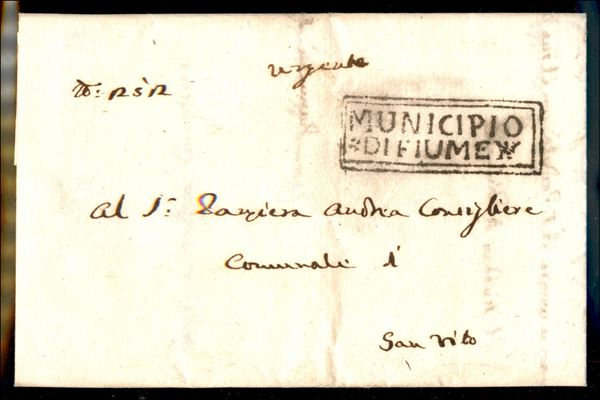 urgente
N: 1212
MUNICIPIO
*DI FIUME*
Al S: Andrea Consigliere
Comunale di
San Vito